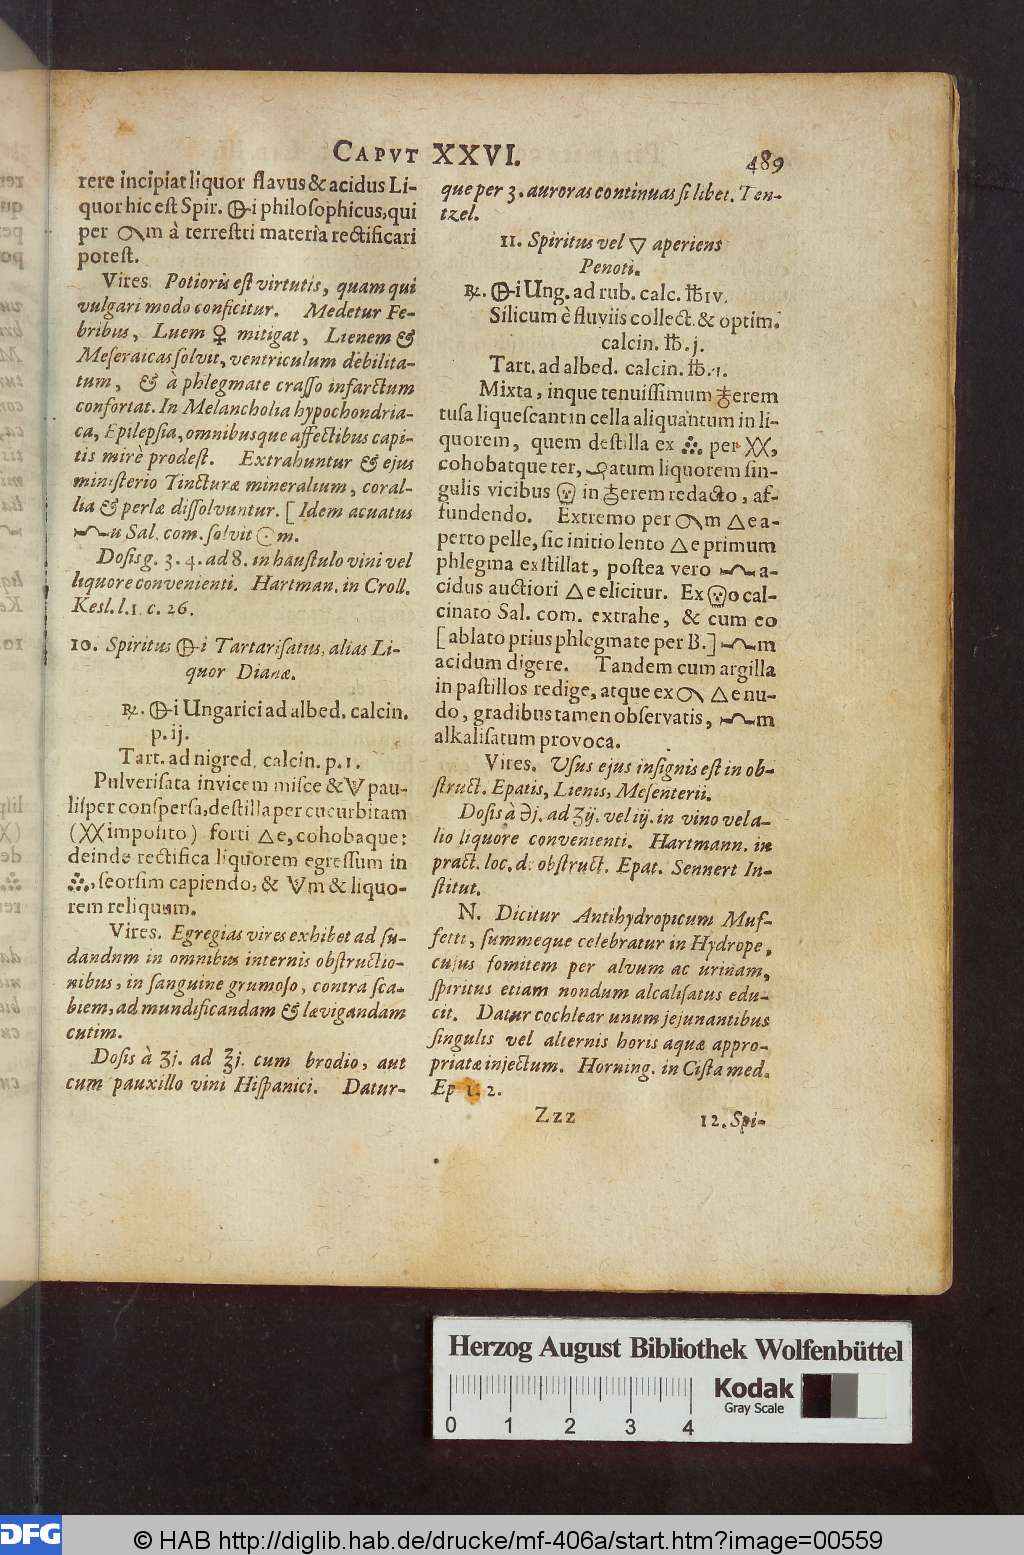 CAPVT XXVI. 489
rere incipiat liquor flavus & acidus Li-
quor hic est Spir. 🜖-i philosophicus, qui
per m à terrestri materia rectificari
potest.
Vires. Potioris est virtutis, quam qui
vulgari modo conficitur. Medetur Fe-
bribus, Luem ♀ mitigat, Lienem &
Meseraicas solvit, ventriculum debilita-
tum, & à phlegmate crasso infarctum
confortat. In Melancholia hypochondria-
ca, Epilepsia, omnibusque affectibus capi-
tis mirè prodest. Extrahuntur & ejus
ministerio Tincturæ mineralium, coral-
lia & perlæ dissolvuntur. [Idem acuatus
u Sal. com. solvit ☉m.
Dosis g. 3. 4. ad 8. in haustulo vini vel
liquore convenienti. Hartman. in Croll.
Kesl. l. 1. c. 26.
10. Spiritus 🜖-i Tartarisatus, alias Li-
quor Dianæ.
℞. 🜖-i Ungarici ad albed. calcin.
p. ij.
Tart. ad nigred. calcin. p. 1.
Pulverisata invicem misce & pau-
lisper conspersa, destilla per cucurbitam
(XX imposito) forti △e, cohobaque:
deinde rectifica liquorem egressum in
seorsim capiendo, & m & liquo-
rem reliquum.
Vires. Egregias vires exhibet ad su-
dandum in omnibus internis obstructio-
nibus, in sanguine grumoso, contra sca-
biem, ad mundificandam & lævigandam
cutim.
Dosis à ʒj. ad ℥j. cum brodio, aut
cum pauxillo vini Hispanici. Datur-
que per 3. auroras continuas si libet. Ten-
tzel.
11. Spiritus vel ▽ aperiens
Penoti.
℞. 🜖-i Ung. ad rub. calc. ℔ IV.
Silicum è fluviis collect. & optim.
calcin. ℔. j.
Tart. ad albed. calcin. ℔. 1.
Mixta, inque tenuissimum erem
tusa liquescant in cella aliquantum in li-
quorem, quem destilla ex per XX,
cohobatque ter, atum liquorem sin-
gulis vicibus in erem redacto, af-
fundendo. Extremo per m △e a-
perto pelle, sic initio lento △e primum
phlegma exstillat, postea vero a-
cidus auctiori △e elicitur. Ex o cal-
cinato Sal. com. extrahe, & cum eo
[ablato prius phlegmate per B.] m
acidum digere. Tandem cum argilla
in pastillos redige, atque ex △e nu-
do, gradibus tamen observatis, m
alkalisatum provoca.
Vires. Usus ejus insignis est in ob-
struct. Epatis, Lienis, Mesenterii.
Dosis à ℈j. ad ʒij. vel iij. in vino vel a-
lio liquore convenienti. Hartmann. in
pract. loc. d. obstruct. Epat. Sennert In-
stitut.
N. Dicitur Antihydropicum Muf-
fetti, summeque celebratur in Hydrope,
cujus fomitem per alvum ac urinam,
spiritus etiam nondum alcalisatus edu-
cit. Datur cochlear unum jejunantibus
singulis vel alternis horis aquæ appro-
priatæ injectum. Horning. in Cista med.
Ep 1. 2.
Zzz 12. Spi-
Herzog August Bibliothek Wolfenbüttel
Kodak
Gray Scale
0 1 2 3 4
DFG © HAB http://diglib.hab.de/drucke/mf-406a/start.htm?image=00559